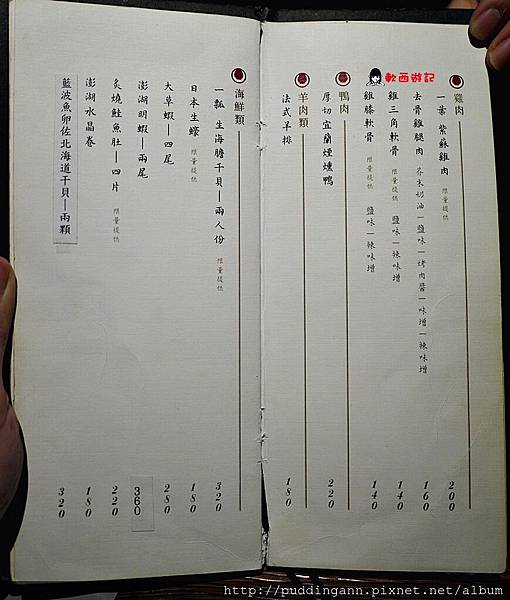 軟西遊記
雞肉
一葉 紫蘇雞肉 限量提供 200
去骨雞腿肉 芥末奶油|鹽味|烤肉醬|味增|辣味增 160
雞三角軟骨 限量提供 鹽味|辣味增 140
雞膝軟骨 限量提供 鹽味|辣味增 140
鴨肉
厚切宜蘭煙燻鴨 220
羊肉類
法式羊排 180
海鮮類
一瓢 生海膽干貝|兩人份 限量提供 320
日本生蠔 限量提供 180
大草蝦|四尾 280
澎湖明蝦|兩尾 360
炙燒鮭魚肚|四片 限量提供 220
澎湖水晶卷 180
藍波魚卵佐北海道干貝|兩顆 320
http://puddingann.pixnet.net/album